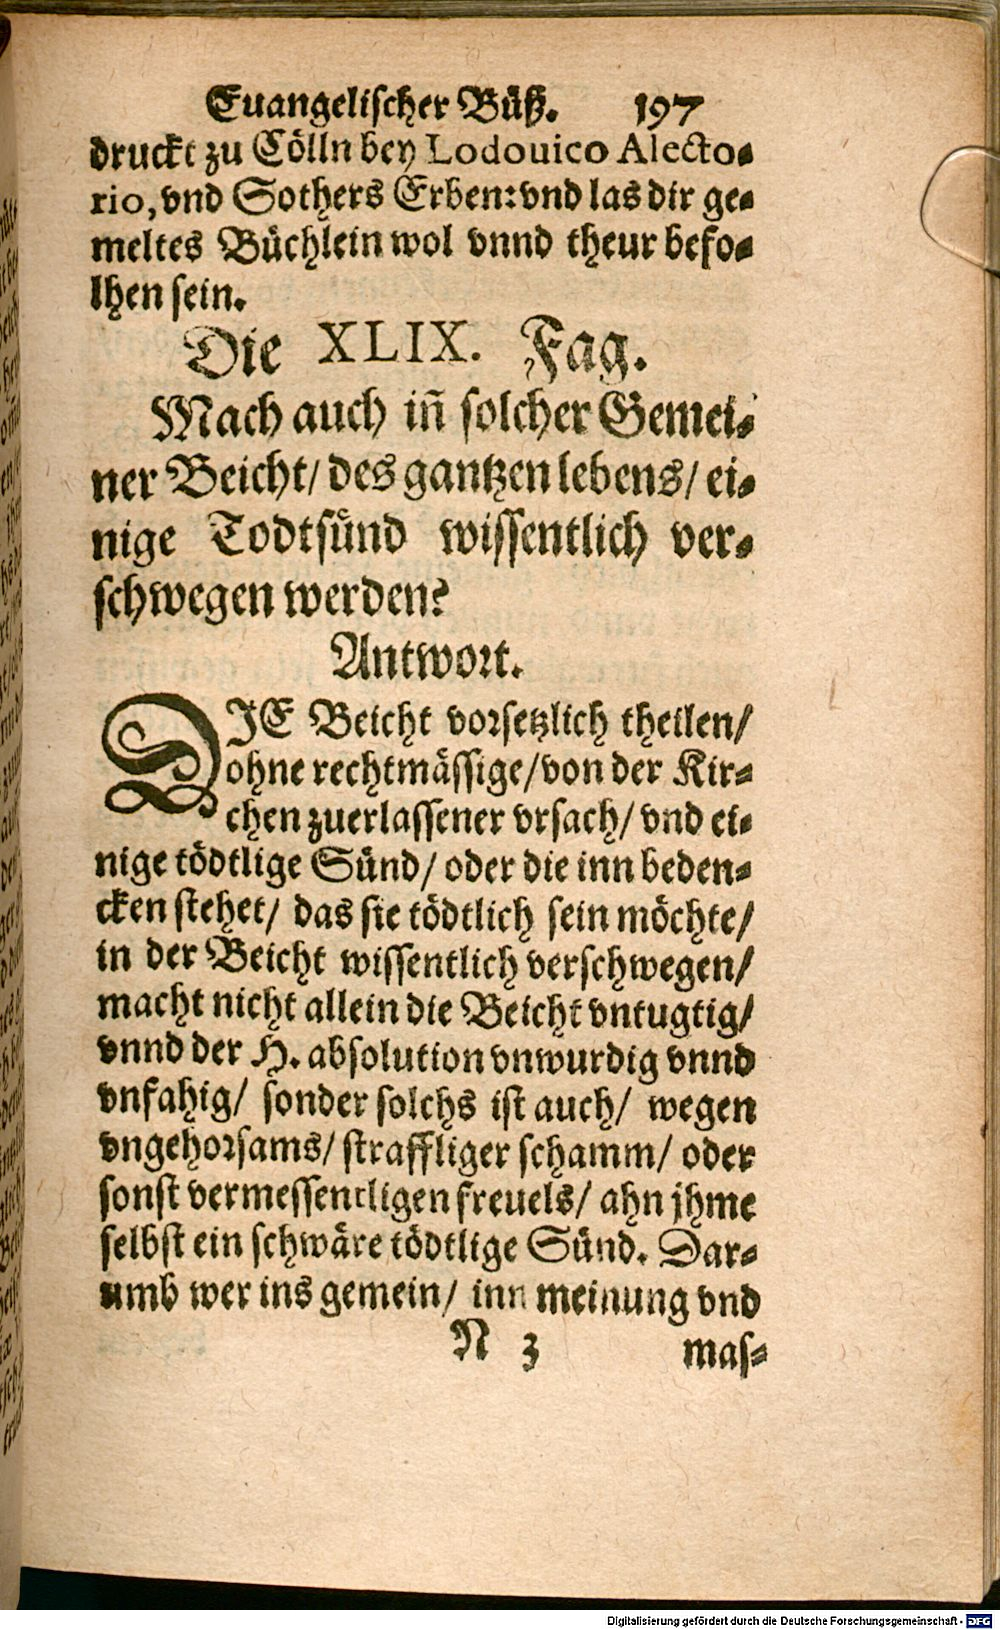 Euangelischer Büß. 197
druckt zu Cölln bey Lodouico Alecto-
rio, vnd Sothers Erben: vnd las dir ge-
meltes Büchlein wol vnnd theur befo-
lhen sein.
Die XLIX. Fag.
Mach auch iñ solcher Gemei-
ner Beicht/ des gantzen lebens/ ei-
nige Todtsünd wissentlich ver-
schwegen werden?
Antwort.
DIE Beicht vorsetzlich theilen/
ohne rechtmässige/ von der Kir-
chen zuerlassener vrsach/ vnd ei-
nige tödtlige Sünd/ oder die inn beden-
cken stehet/ das sie tödtlich sein möchte/
in der Beicht wissentlich verschwegen/
macht nicht allein die Beicht vntugtig/
vnnd der H. absolution vnwurdig vnnd
vnfahig/ sonder solchs ist auch/ wegen
vngehorsams/ straffliger schamm/ oder
sonst vermessentligen freuels/ ahn jhme
selbst ein schwäre tödtlige Sünd. Dar-
umb wer ins gemein/ inn meinung vnd
N 3 mas-
Digitalisierung gefördert durch die Deutsche Forschungsgemeinschaft - DFG